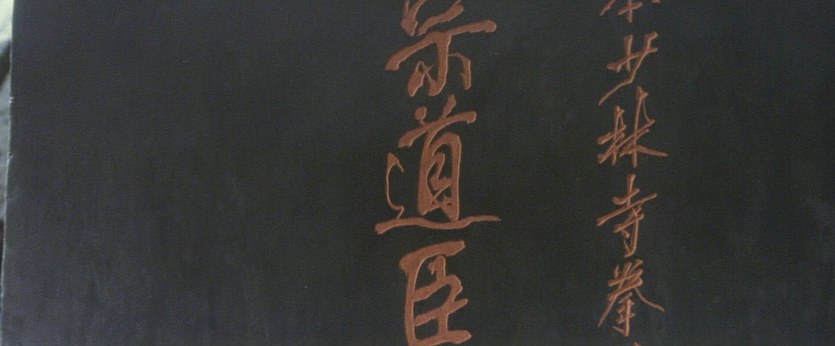 本少林寺拳
宗道臣